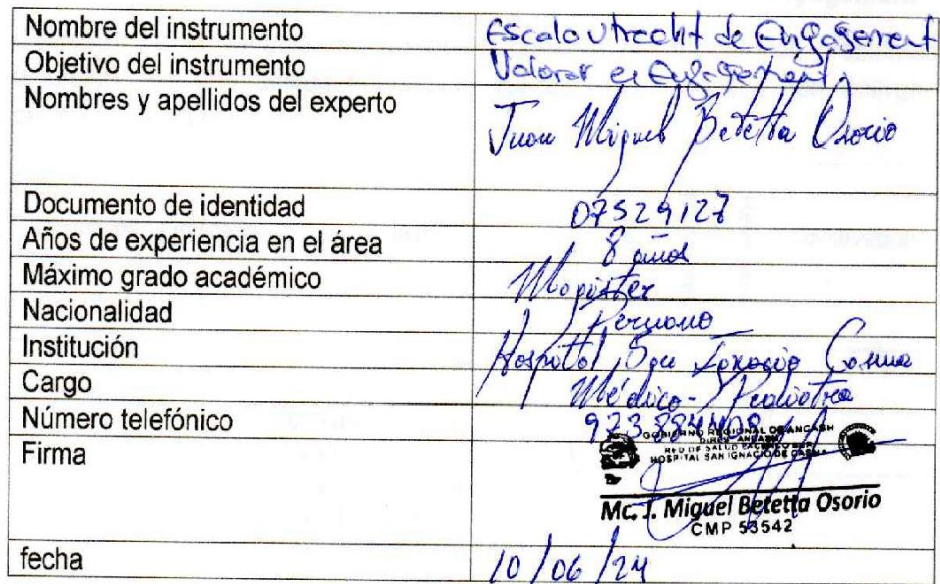 Nombre del instrumento Escala Utrecht de Engagement
Objetivo del instrumento Valorar el Engagement
Nombres y apellidos del experto Juan Miguel Betetta Osorio
Documento de identidad 07529127
Años de experiencia en el área 8 años
Máximo grado académico Magister
Nacionalidad Peruano
Institución Hospital San Ignacio Casma
Cargo Médico - Pediatra
Número telefónico 923884408
GOBIERNO REGIONAL DE ANCASH
RED DE SALUD PACIFICO SUR
HOSPITAL SAN IGNACIO DE CASMA
Firma
Mc. J. Miguel Betetta Osorio
CMP 53542
fecha 10/06/24